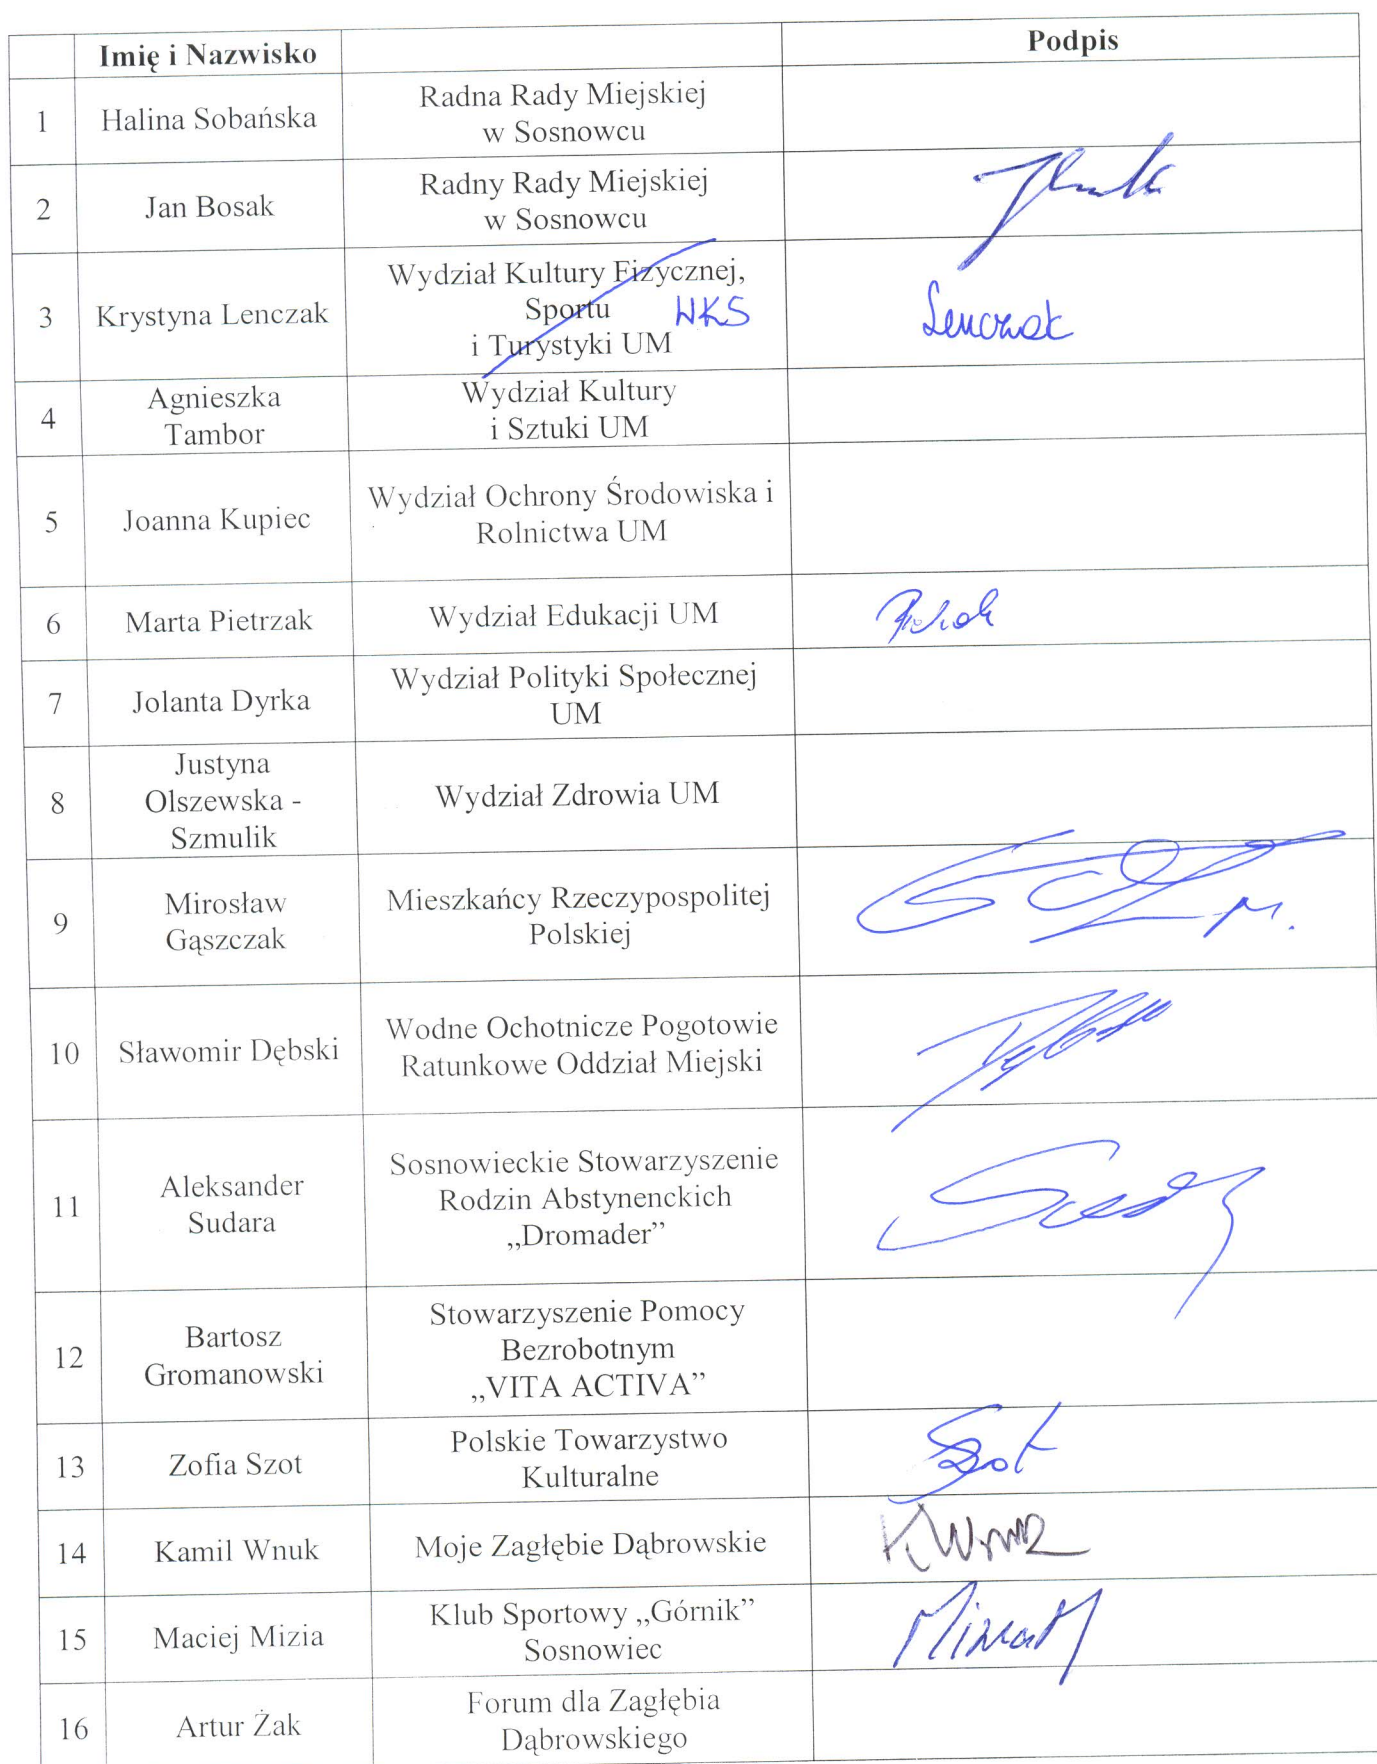 Imię i Nazwisko Podpis
1 Halina Sobańska Radna Rady Miejskiej
w Sosnowcu
2 Jan Bosak Radny Rady Miejskiej
w Sosnowcu
3 Krystyna Lenczak Wydział Kultury Fizycznej,
Sportu WKS
i Turystyki UM
Lenczak
4 Agnieszka
Tambor
Wydział Kultury
i Sztuki UM
5 Joanna Kupiec Wydział Ochrony Środowiska i
Rolnictwa UM
6 Marta Pietrzak Wydział Edukacji UM
7 Jolanta Dyrka Wydział Polityki Społecznej
UM
8 Justyna
Olszewska -
Szmulik
Wydział Zdrowia UM
9 Mirosław
Gąszczak
Mieszkańcy Rzeczypospolitej
Polskiej
10 Sławomir Dębski Wodne Ochotnicze Pogotowie
Ratunkowe Oddział Miejski
11 Aleksander
Sudara
Sosnowieckie Stowarzyszenie
Rodzin Abstynenckich
„Dromader”
12 Bartosz
Gromanowski
Stowarzyszenie Pomocy
Bezrobotnym
„VITA ACTIVA”
13 Zofia Szot Polskie Towarzystwo
Kulturalne
Szot
14 Kamil Wnuk Moje Zagłębie Dąbrowskie K Wnuk
15 Maciej Mizia Klub Sportowy „Górnik”
Sosnowiec
16 Artur Żak Forum dla Zagłębia
Dąbrowskiego